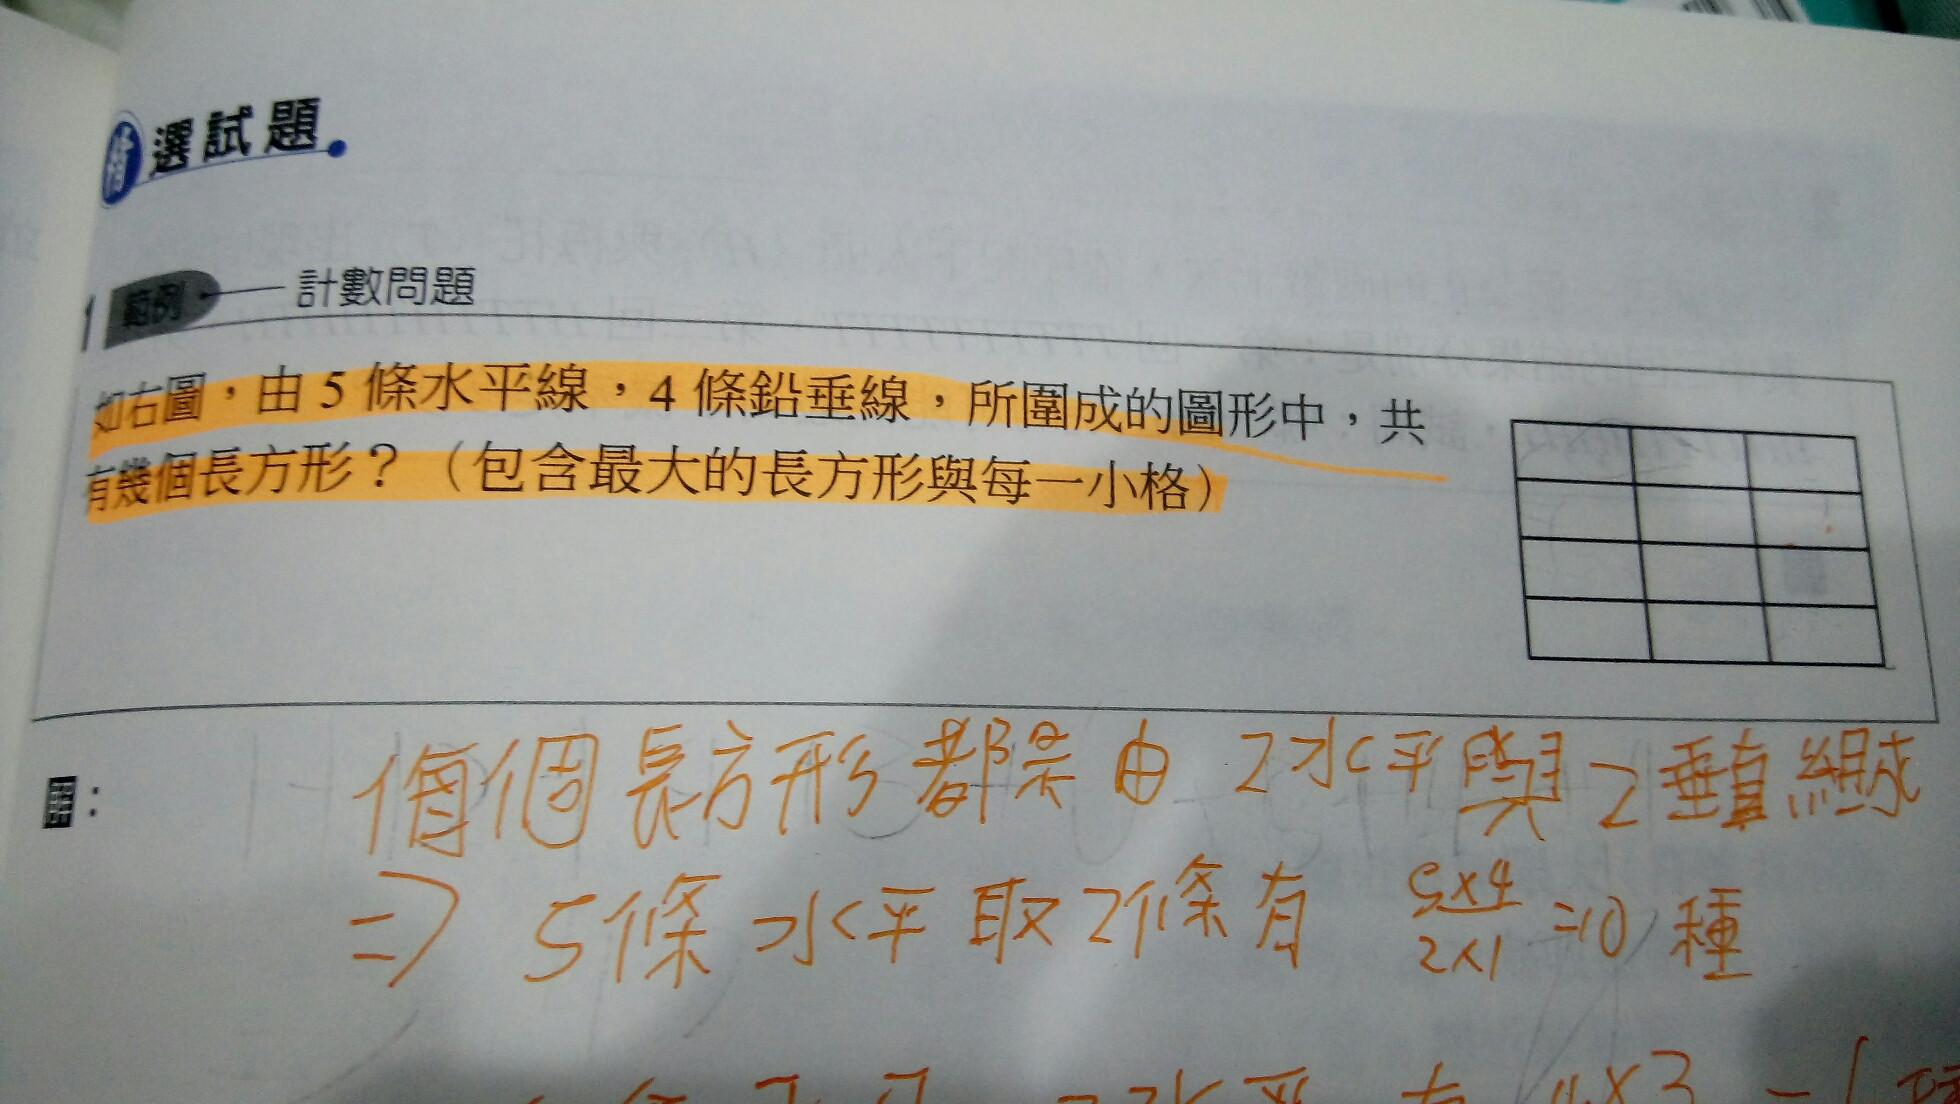 精選試題
範例 計數問題
如右圖，由 5 條水平線，4 條鉛垂線，所圍成的圖形中，共
有幾個長方形？（包含最大的長方形與每一小格）
個長方形都是由 2水平與2垂直組成
⇒ 5條水平取2條有 5×4/2×1 =10 種